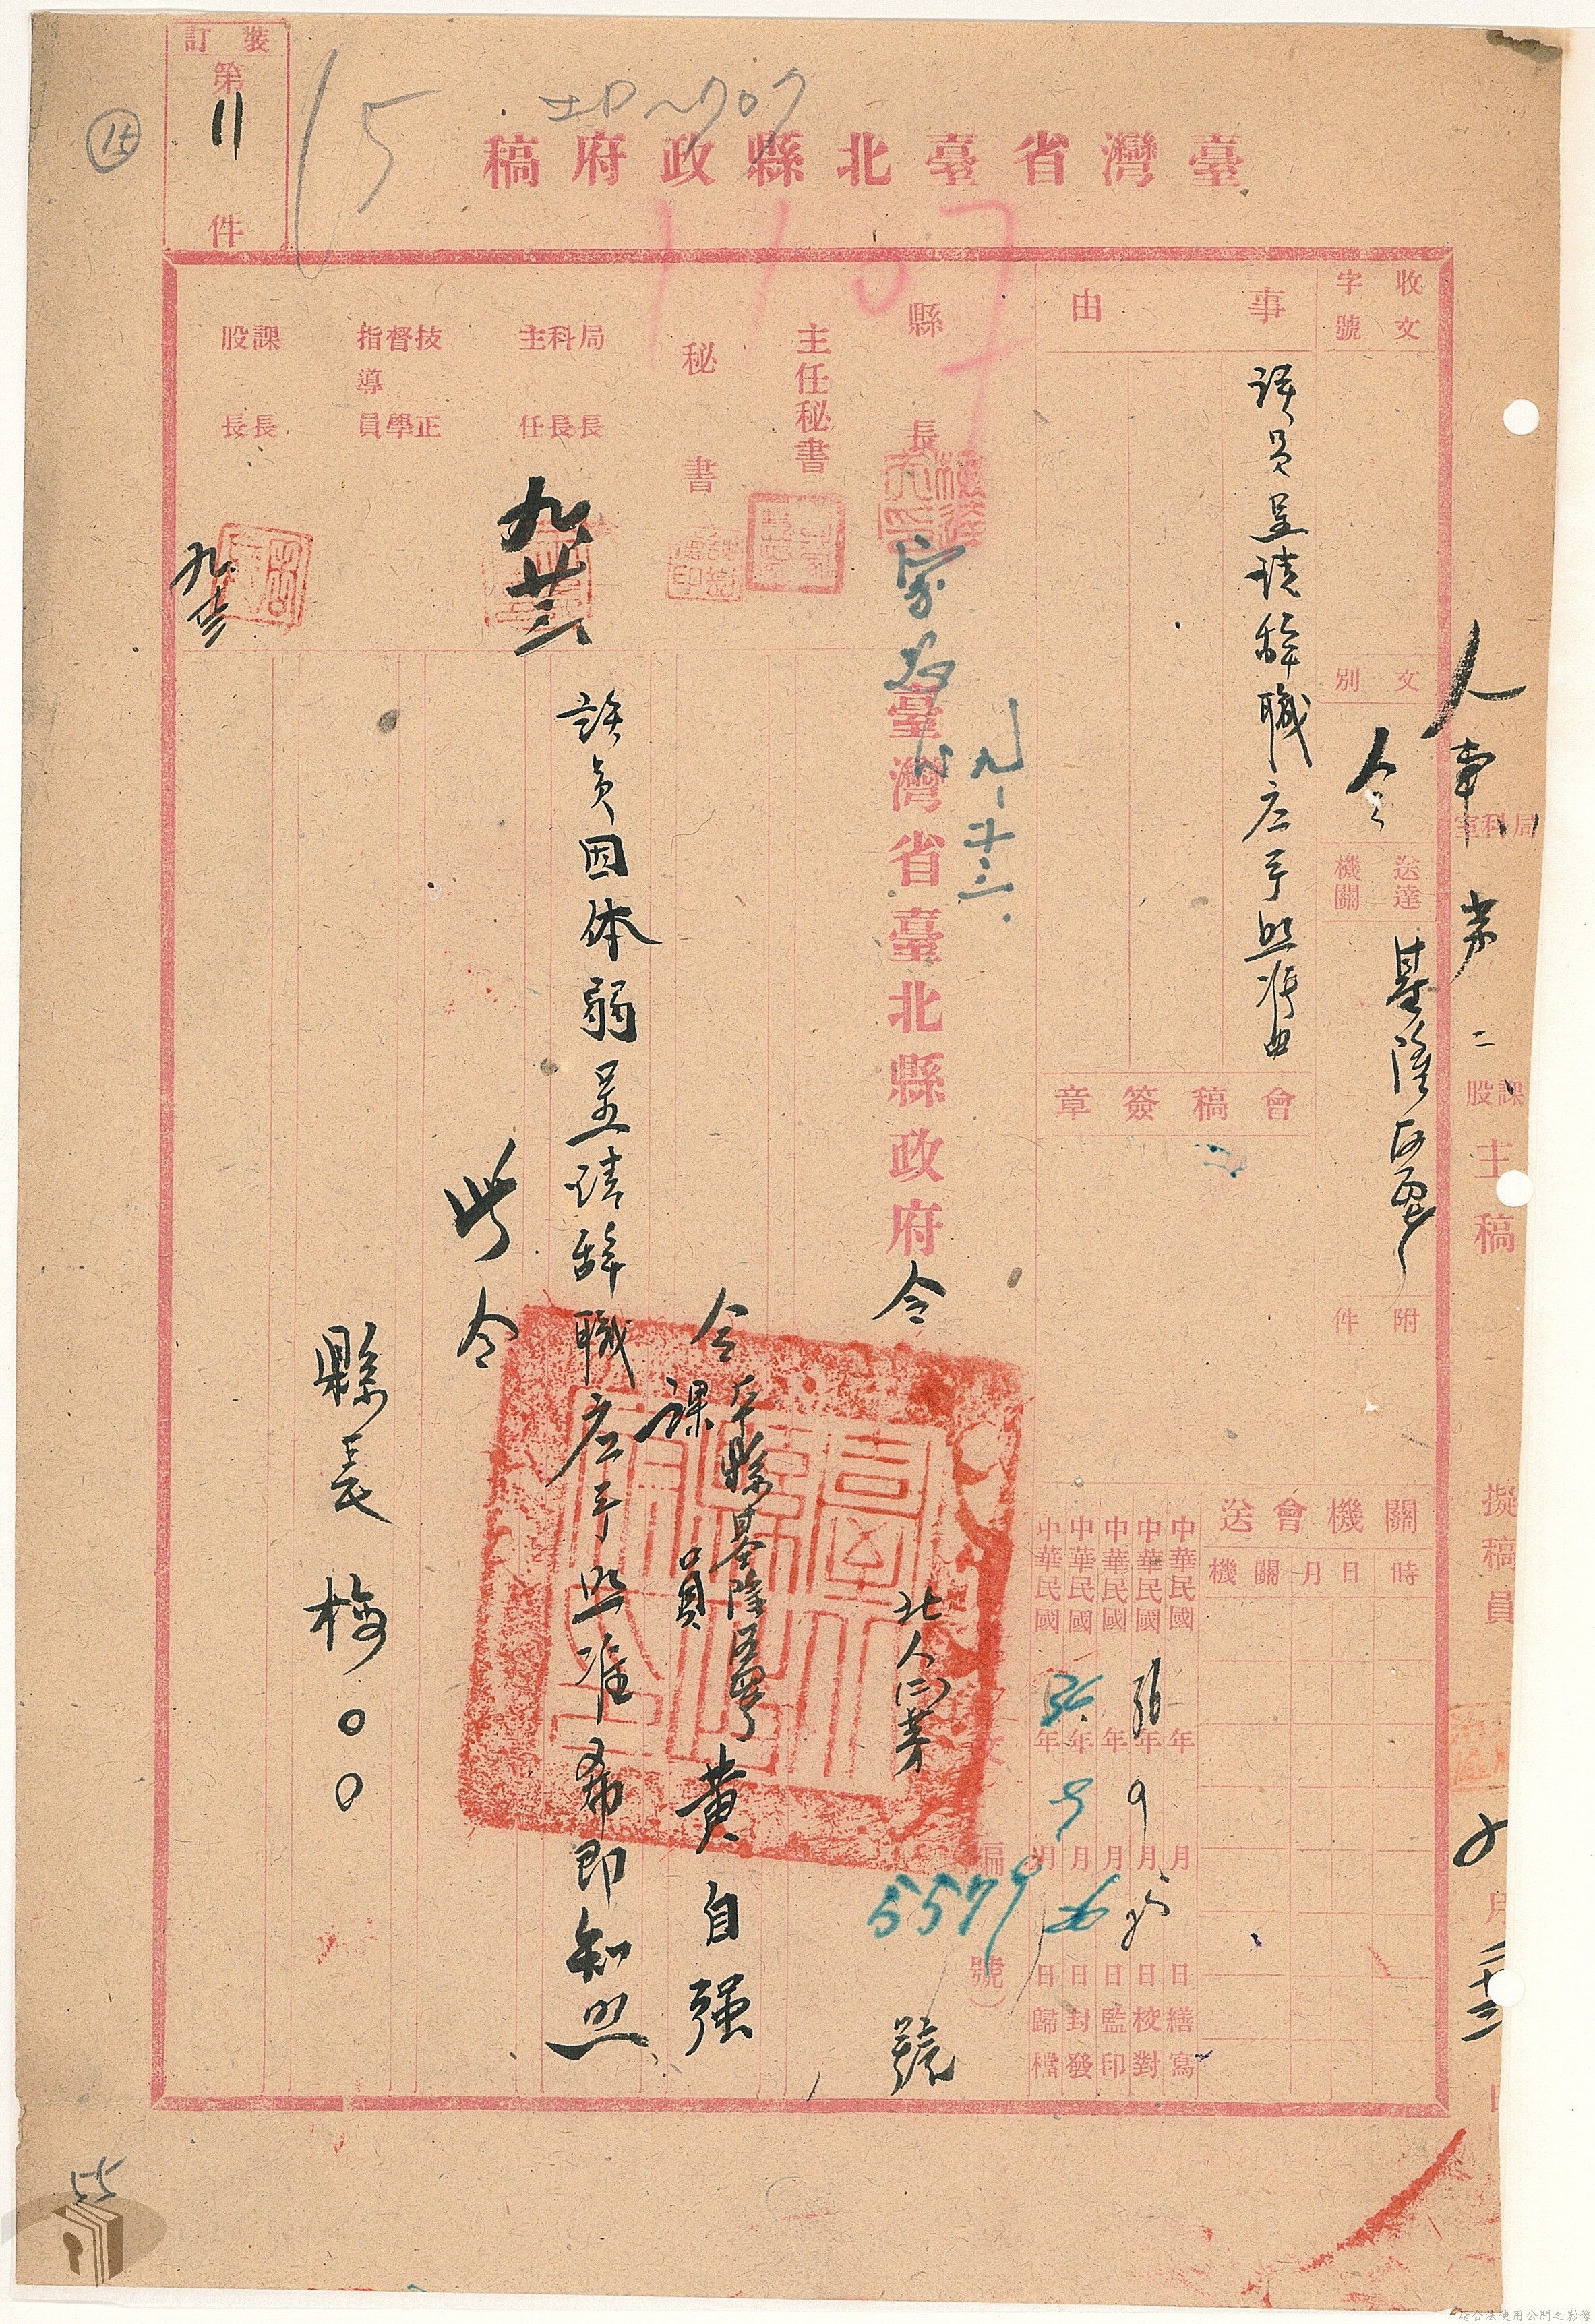 裝訂
第
11
件
15
臺灣省臺北縣政府稿
1107
收文
字號
文別
令
送達機關
附件
事由
該員呈請辭職应予照准由
會稿簽章
人事
局科室
第二
課股
主稿
擬稿員
縣長
主任秘書
秘書
局長
科長
主任
技正
督學
指導員
課長
股長
九廿三
九-二十三.
關機會送
機關
月日時
中華民國 年 月 日繕寫
中華民國 年9月25日校對
中華民國 年 月 日監印
中華民國 年 月 日封發
中華民國 年9月26日歸檔
臺灣省臺北縣政府令
北人(二)第
5579
號
令本縣基隆區署
課員
黃自强
該員因体弱呈請辭職应予照准希即知照
此令
縣長 梅〇〇
55
請合法使用公開之影像